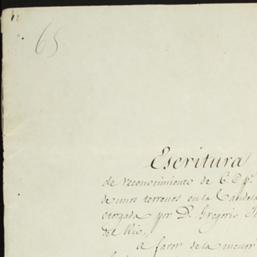 65
Escritura
de reconocimiento de
de unos terrenos en la
otorgada por D. Gregorio
del Rio,
a favor de la menor